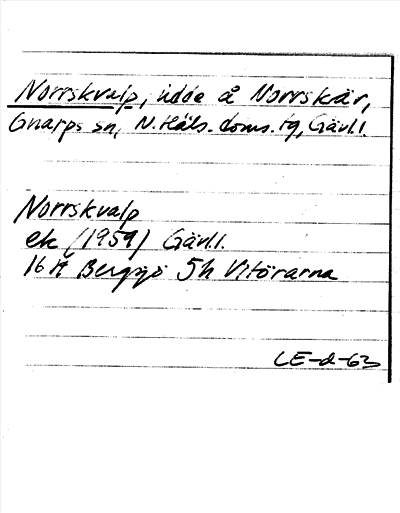 Norrskvalp, udde å Norrskär,
Gnarps sn, N. Häls. doms. tg, Gävl.l.
Norrskvalp
ek (1959) Gävl.l.
16 H Bergsjö 5h Vitörarna
LE-d-63